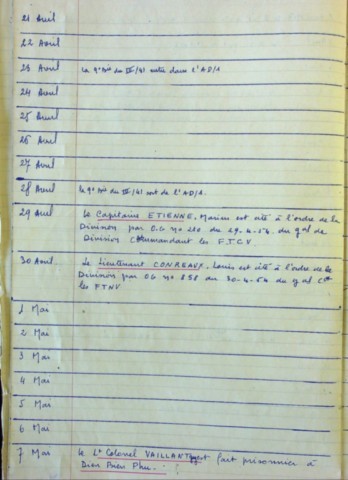 21 Avril
22 Avril
23 Avril La 9e Bie du IV/41 entre dans l'A.D/A
24 Avril
25 Avril
26 Avril
27 Avril
28 Avril La 9e Bie du IV/41 sort de l'A.D/A.
29 Avril Le Capitaine ETIENNE, Marien est cité à l'ordre de la
Division par O.G no 210 du 29-4-54 du gal de
Division Commandant les F.T.C.V.
30 Avril Le Lieutenant CONREAUX, Louis est cité à l'ordre de la
Division par OG no 858 du 30-4-54 du gal Ct
les FTNV
1 Mai
2 Mai
3 Mai
4 Mai
5 Mai
6 Mai
7 Mai Le Lt Colonel VAILLANT est fait prisonnier à
Dien Bien Phu.